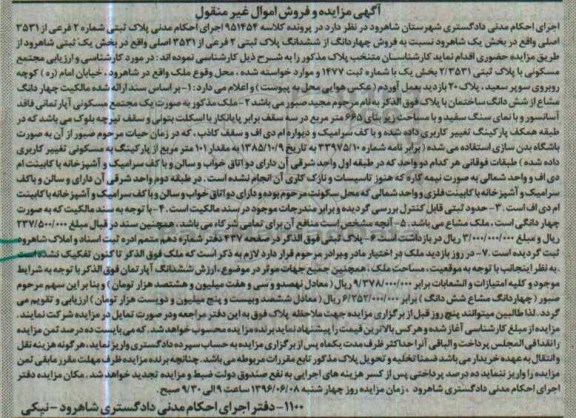 آگهی مزایده و فروش اموال غیر منقول
اجرای احکام مدنی دادگستری شهرستان شاهرود در نظر دارد در پرونده کلاسه ۹۵۱۴۵۴ اجرای احکام مدنی پلاک ثبتی شماره ۲ فرعی از ۳۵۳۱
اصلی واقع در بخش یک شاهرود نسبت به فروش چهاردانگ از ششدانگ پلاک ثبتی ۲ فرعی از ۳۵۳۱ اصلی واقع در بخش یک ثبتی شاهرود از
طریق مزایده حضوری اقدام نماید کارشناسان منتخب پلاک مذکور را به شرح ذیل کارشناسی نموده اند: در مورد کارشناسی و ارزیابی مجتمع
مسکونی با پلاک ثبتی ۲/۳۵۳۱ بخش یک با شماره ثبت ۱۴۷۷ و موارد خواسته شده. محل وقوع ملک واقع در شاهرود، خیابان امام (ره) کوچه
روبروی سوپر سعید، پلاک ۲۰ بازدید بعمل آوردم (عکس هوایی محل به پیوست) و اعلام می دارد: ۱- بر اساس سند ارائه شده مالکیت چهار دانگ
مشاع از شش دانگ ساختمان با پلاک فوق الذکر به نام مرحوم مجید صبور می باشد ۲- ملک مذکور به صورت یک مجتمع مسکونی آپارتمانی فاقد
آسانسور و با نمای سنگ سفید و با مساحت زیر بنای ۶۶۵ متر مربع در سه سقف برابر پایانکار با اسکلت بتونی و سقف تیرچه بلوک می باشد که در
طبقه همکف پارکینگ تغییر کاربری داده شده و با کف سرامیک و دیواره ام دی اف و سقف کاذب، که در زمان حیات مرحوم صبور از آن به صورت
باشگاه بدن سازی استفاده می شده (برابر نامه شماره ۳۳۹۷۵/۱۰ به تاریخ ۱۳۸۵/۱۰/۹ به مقدار ۱۰۱ متر مربع از پارکینگ به مسکونی تغییر کاربری
داده شده) طبقات فوقانی هر کدام دو واحد که در طبقه اول واحد شرقی آن دارای دو اتاق خواب و سالن و با کف سرامیک و آشپزخانه با کابینت ام
دی اف و واحد شمالی به صورت نیمه کاره که هنوز تاسیسات و نازک کاری آن انجام نشده است. در طبقه دوم واحد شرقی آن دارای و سالن و با کف
سرامیک و آشپزخانه با کابینت فلزی و واحد شمالی که محل سکونت مرحوم بوده و دارای دو اتاق خواب و سالن و با کف سرامیک و آشپزخانه با کابینت
ام دی اف است. ۳- حدود ثبتی قابل کنترل بررسی گردیده و برابر مندرجات موجود در سند مالکیت است. ۴- با توجه به سند مالکیت که به صورت
چهار دانگی است، ملک مشاع می باشد. ۵- آنچه مشخص است منافع آن برای تمامی شرکاء می باشد. همچنین سند در قبال مبلغ ۲۳۷/۵۰۰/۰۰۰
ریال و مبلغ ۲/۰۰۰/۰۰۰/۰۰۰ ریال در بازداشت است ۶- پلاک ثبتی فوق الذکر در صفحه ۲۳۷ دفتر شماره دهم متمم اداره ثبت اسناد و املاک شاهرود
ثبت گردیده است. ۷- در روز بازدید ملک در اختیار مادر و برادر مرحوم قرار دارد لازم به ذکر است که ملک فوق الذکر تاکنون تفکیک نشده است
به نظر اینجانب با توجه به موقعیت، مساحت ملک، همچنین جمیع جهات موثر در موضوع، ارزش ششدانگ آپارتمان فوق الذکر با توجه به شرایط
موجود و کلیه امتیازات و انشعابات برابر ۹/۳۷۸/۰۰۰/۰۰۰ ریال (معادل نهصد و سی و هفت میلیون و هشتصد هزار تومان) و بنا بر این سهم مرحوم
صبور (چهاردانگ مشاع شش دانگ) برابر ۶/۲۵۲/۰۰۰/۰۰۰ ریال (معادل ششصد و بیست و پنج میلیون و دویست هزار تومان) ارزیابی و تقویم می
گردد. لذا طالبین میتوانند پنج روز قبل از برگزاری مزایده جهت ملاحظه پلاک فوق به این دفتر مراجعه و در صورت تمایل در مزایده شرکت نمایند.
مزایده از مبلغ کارشناسی آغاز شده و هر کس بالاترین قیمت را پیشنهاد نماید برنده مزایده محسوب خواهد شد. که می بایست ده درصد ثمن مزایده
را نقدا فی المجلس پرداخت و الباقی آنرا حداکثر ظرف مدت یکماه پس از برگزاری مزایده به حساب سپرده دادگستری واریز نماید. هر گونه هزینه نقل
و انتقال به عهده خریدار می باشد ضمنا تخلیه و تحویل پلاک مذکور تابع مقررات مربوطه می باشد. چنانچه برنده مزایده ظرف مهلت مقرر مابقی ثمن
مزایده را واریز ننماید ده درصد پرداختی پس از کسر هزینه های اجرایی به نفع صندوق دولت ضبط و مزایده تجدید خواهد شد. مکان مزایده دفتر
اجرای احکام مدنی دادگستری شاهرود، زمان مزایده روز چهار شنبه ۱۳۹۶/۰۶/۰۸ ساعت ۹ الی ۹/۳۰ صبح.
۱۱۰۰- دفتر اجرای احکام مدنی دادگستری شاهرود - نیکی